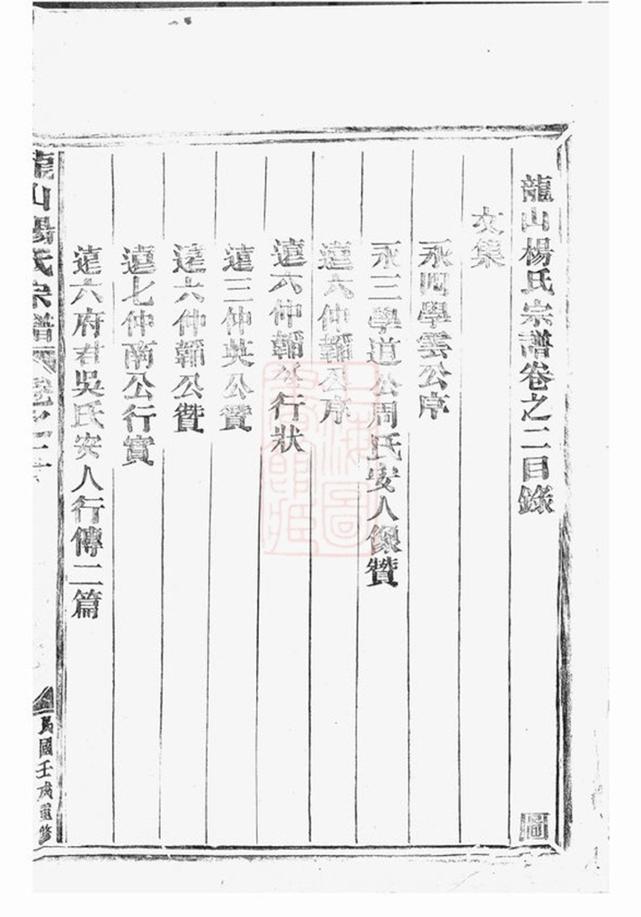 龍山楊氏宗譜卷之二目錄
文集
永四學雲公序
永三學道公周氏安人像贊
達九仲韜公序
達六仲韜公行狀
達三仲英公贊
達六仲韜公贊
達七仲南公行實
達六府君吳氏安人行傳二篇
龍山楊氏宗譜 卷之二
民國壬戌重修
圖